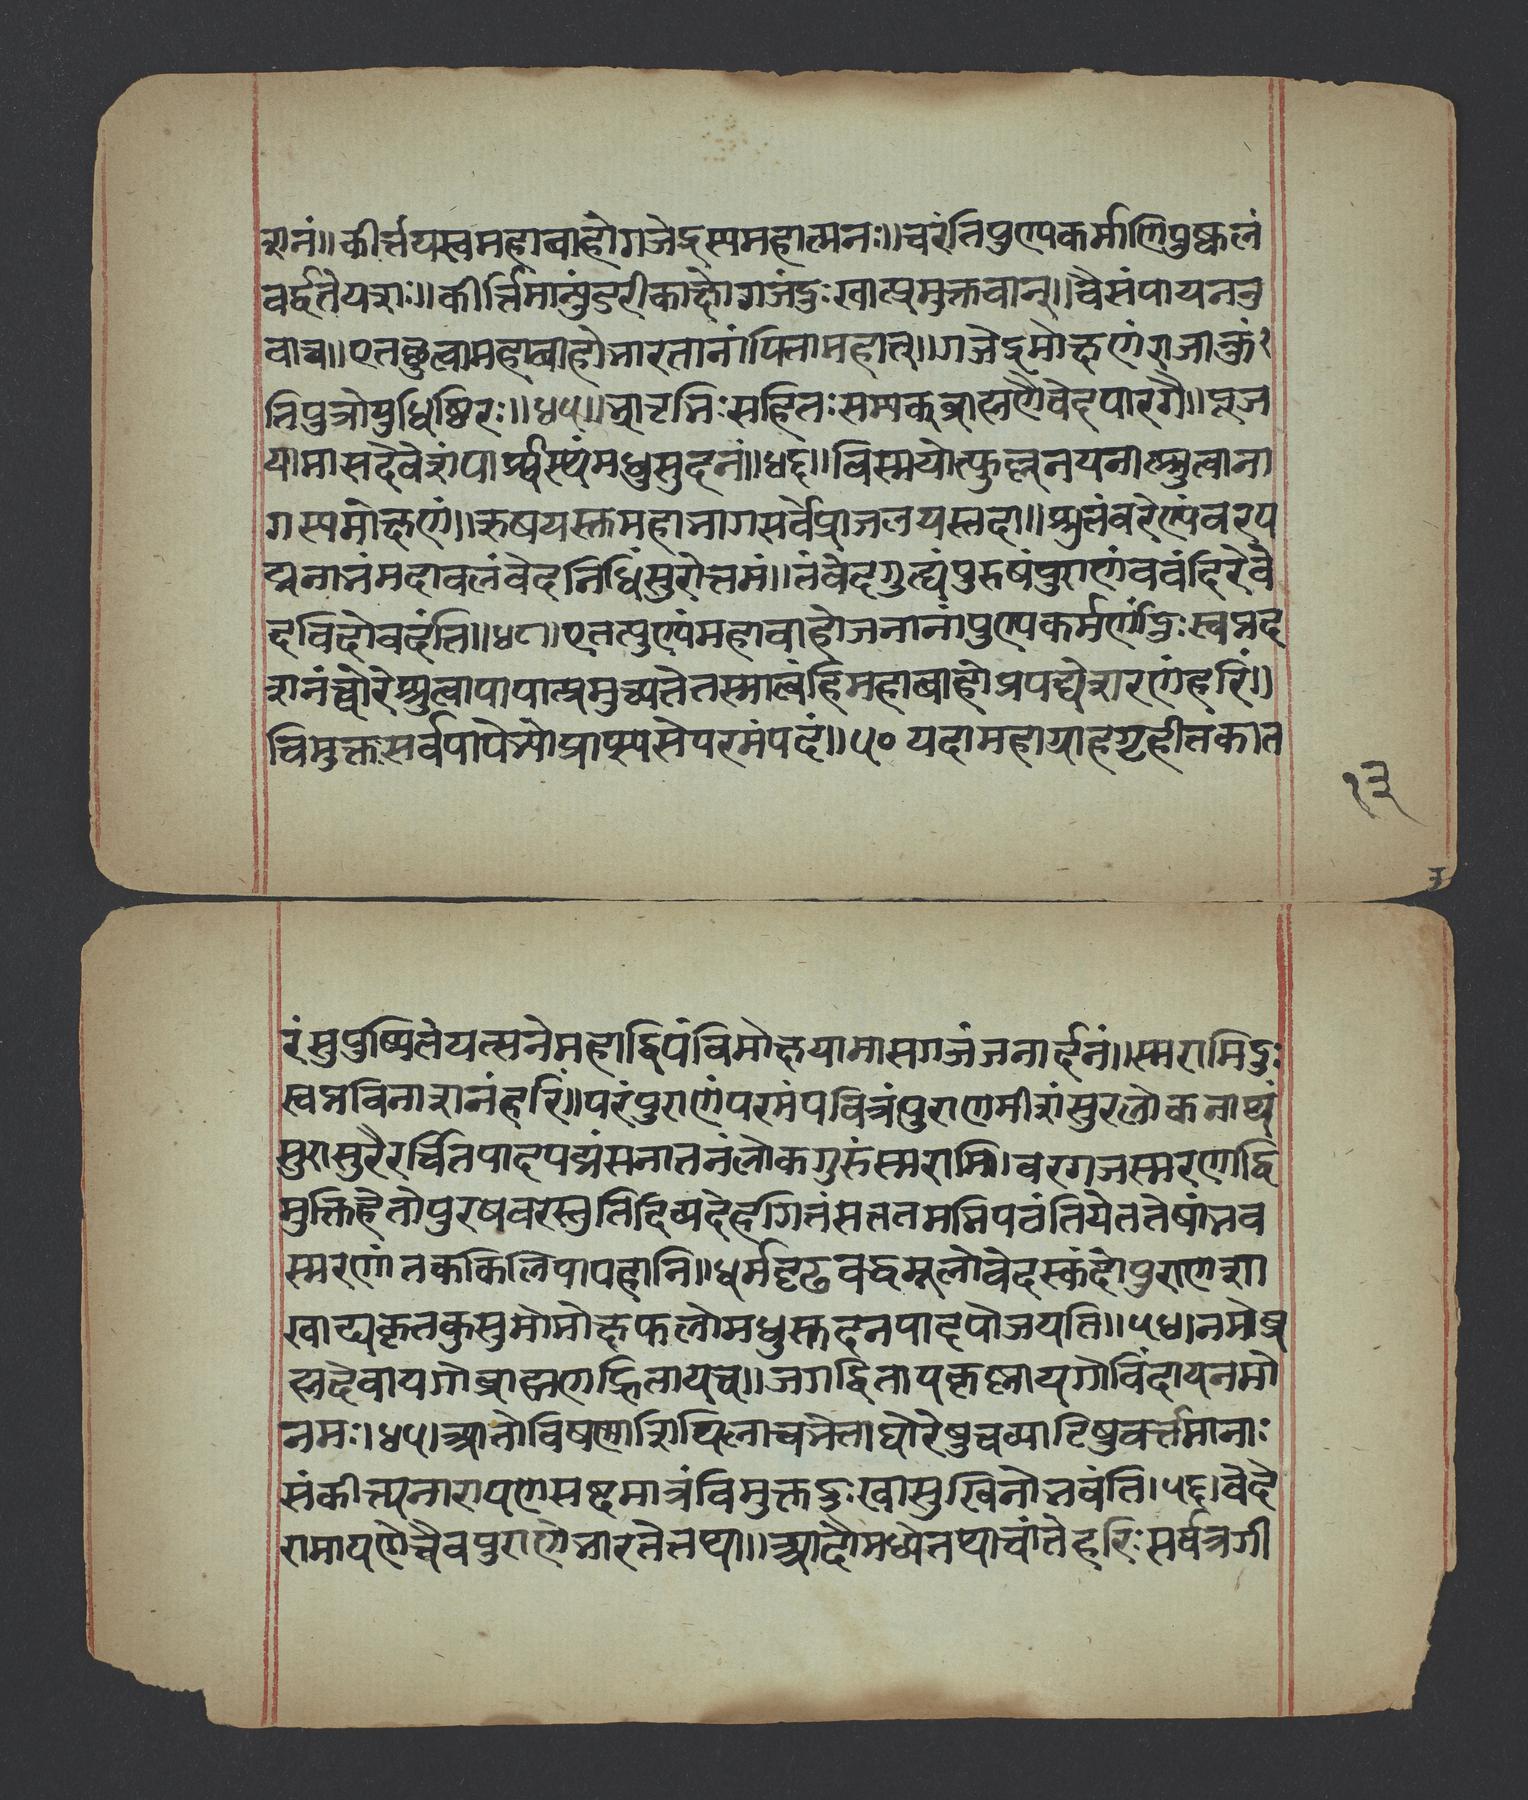 शनं॥कीर्त्तयस्वमहाबाहोगजेद्रस्यमहात्मनः॥चरंतिपुण्यकर्माणिपुष्कलं
वर्द्धतेयशः॥कीर्त्तिमान्पुंडरीकाक्षोगजंदुःखात्प्रमुक्तवान्॥वैसंपायनउ
वाच॥एतछ्रुत्वामहाबाहोभारतानांपितामहात्॥गजेद्रमोक्षणंराजाकुं
तिपुत्रोयुधिष्ठिरः॥४५॥भ्रातृभिःसहितःसम्यक्ब्राह्मणैर्वेदपारगै॥पूज
यामासदेवेशंपार्श्वस्थंमधुसुदनं॥४६॥विस्मयोत्फुल्लनयनाःश्रुत्वाना
गस्यमोक्षणं॥ऋषयस्तमहाभागसर्वेप्राजलयस्तदा॥श्रुतंवरेण्यंवरप
द्मनाभंमदाबलंवेदनिधिंसुरोत्तमं॥तंवेदगुह्यंपुरुषंपुराणंववंदिरेवे
दविदोवदंति॥४८॥एतत्पुण्यंमहाबाहोजनानांपुण्यकर्मणांदुःस्वप्नद
शनंच्चोरेश्रुत्वापापात्प्रमुच्यतेतस्मात्वंहिमहाबाहोप्रपद्येशरणंहरिं॥
विमुक्तःसर्वपापेभ्योप्राप्स्यसेपरमंपदं॥५०यदामहाग्राहगृहीतकात
१३
रंसुपुष्पितेयत्सनेमहाद्विपंविमोक्षयामासगजंजनार्दनं॥स्मरामिदुः
स्वप्नविनाशनंहरिं॥परंपुराणंपरमंपवित्रंपुराणमीशंसुरलोकनाथं
सुरासुरैरर्चितपादपद्मंसनातनंलोकगुरुंस्मरामि॥वरगजस्मरणाद्वि
मुक्तिहेतोपुरषवरस्तुतिदिव्यदेहगितंसततमभिपठंतियेततेषांभव
स्मरणांतककिलिपापहानि॥धर्मदृढबद्धमूलोवेदस्कंदोपुराणशा
खाढ्यकृतकुसुमोमोक्षफलोमधुस्तदनपादपोजयति॥५४।नमोब्र
ह्मदेवायगोब्राह्मणहितायच॥जगद्धितायकृष्णायगोविंदायनमो
नमः।५५।आर्तोविषणाशिथिलाचभेताघोरेषुचव्याटिषुवर्त्तमानाः
संकीर्त्यनारायणसष्टमात्रंविमुक्तदुःखासुखिनोभवंति।५६।वेदे
रामायणेचैवपुराणेभारतेतथा॥आदौमध्येतथाचांतेहरिःसर्वत्रगी